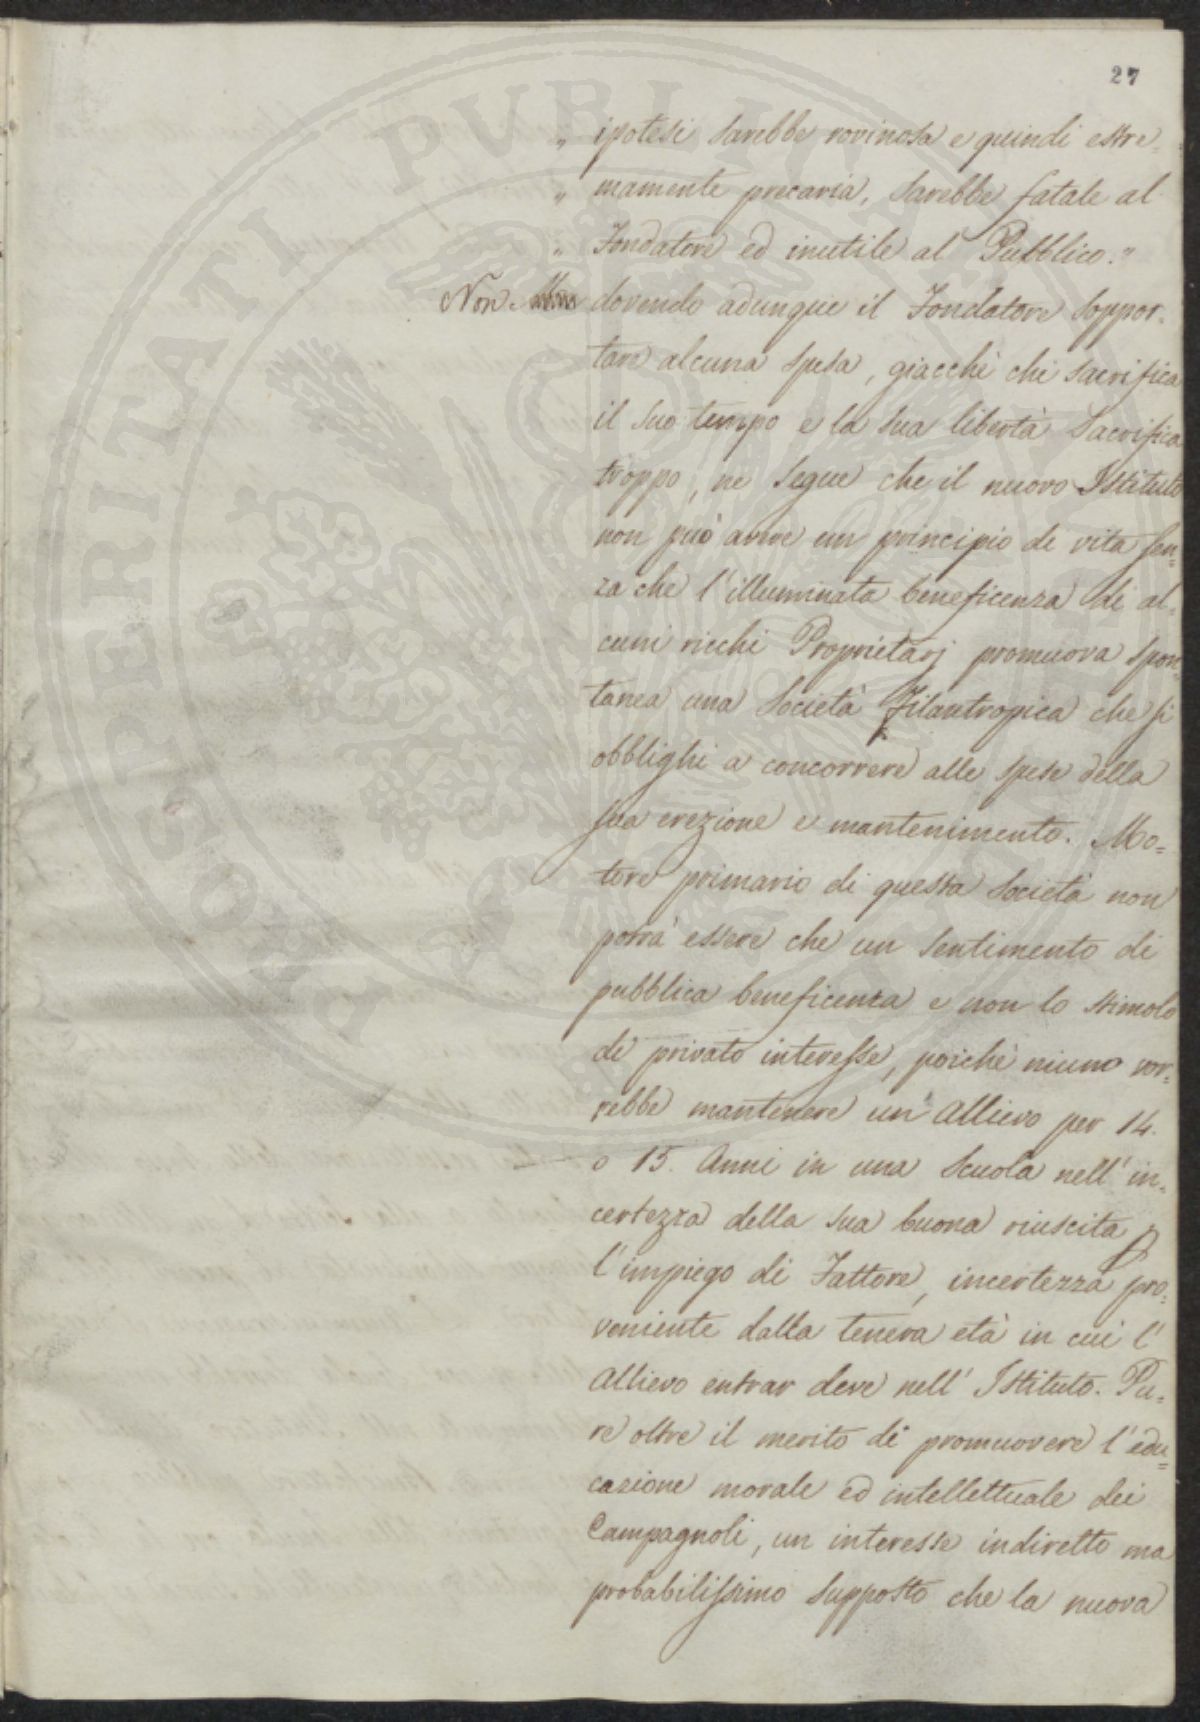 27
„ ipotesi sarebbe rovinosa e quindi estre-
„ mamente precaria, sarebbe fatale al
„ Fondatore ed inutile al Pubblico."
Non dovendo adunque il Fondatore soppor-
tare alcuna spesa, giacchè chi sacrifica
il suo tempo e la sua libertà sacrifica
troppo, ne segue che il nuovo Istituto
non può avere un principio di vita sen-
za che l'illuminata beneficenza di al-
cuni ricchi Proprietarj promuova spon-
tanea una Società Filantropica che si
obblighi a concorrere alle spese della
sua erezione e mantenimento. Mo=
tore primario di questa società non
potrà essere che un sentimento di
pubblica beneficenza e non lo stimolo
di privato interesse, poichè niuno vor-
rebbe mantenere un Allievo per 14.
o 15. Anni in una Scuola nell'in-
certezza della sua buona riuscita p
l'impiego di Fattore, incertezza pro-
veniente dalla tenera età in cui l'
Allievo entrar deve nell'Istituto. Pu-
re oltre il merito di promuovere l'edu=
cazione morale ed intellettuale dei
Campagnoli, un interesse indiretto ma
probabilissimo supposto che la nuova
PROSPERITATI PUBLICAE